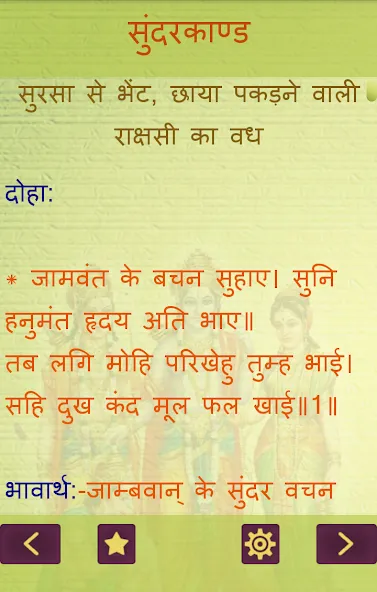 सुंदरकाण्ड
सुरसा से भेंट, छाया पकड़ने वाली
राक्षसी का वध
दोहा:
* जामवंत के बचन सुहाए। सुनि
हनुमंत हृदय अति भाए॥
तब लगि मोहि परिखेहु तुम्ह भाई।
सहि दुख कंद मूल फल खाई॥1॥
भावार्थ:-जाम्बवान् के सुंदर वचन